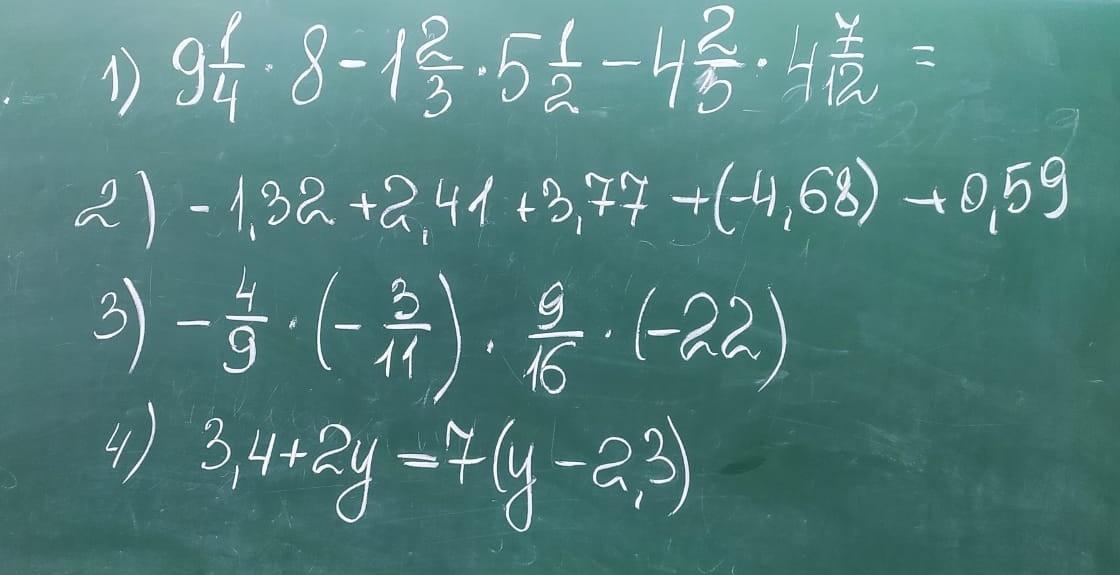 1) 9 1/4 · 8 - 1 2/3 · 5 1/2 - 4 2/5 · 4 7/12 =
2) - 1,32 + 2,41 + 3,77 + (-4,68) + 0,59
3) - 4/9 · (- 3/11) · 9/16 · (-22)
4) 3,4 + 2y = 7(y - 2,3)